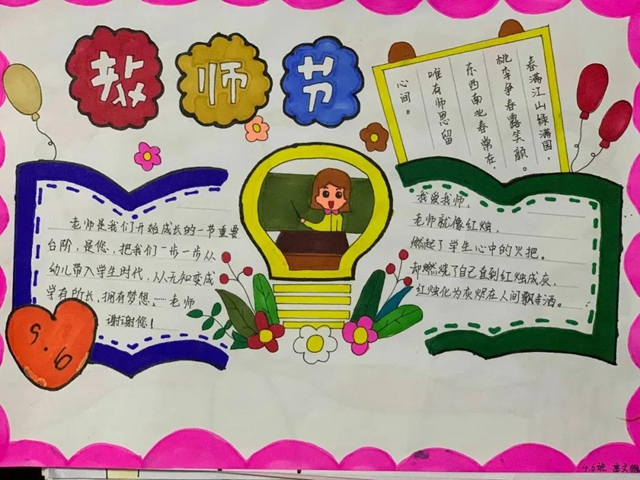 教师节
春满江山绿满园，
桃李争春露笑颜。
东西南北春常在，
唯有师思留
心间。
老师是我们开始成长的一节重要
台阶，是您，把我们一步一步从
幼儿带入学生时代，从无知变成
学有所长，拥有梦想，……老师
谢谢您！
我爱我师，
老师就像红烛，
燃起了学生心中的火把。
却燃烧了自己直到红烛成灰，
红烛化为灰烬在人间飘洒。
9.5
4.6班